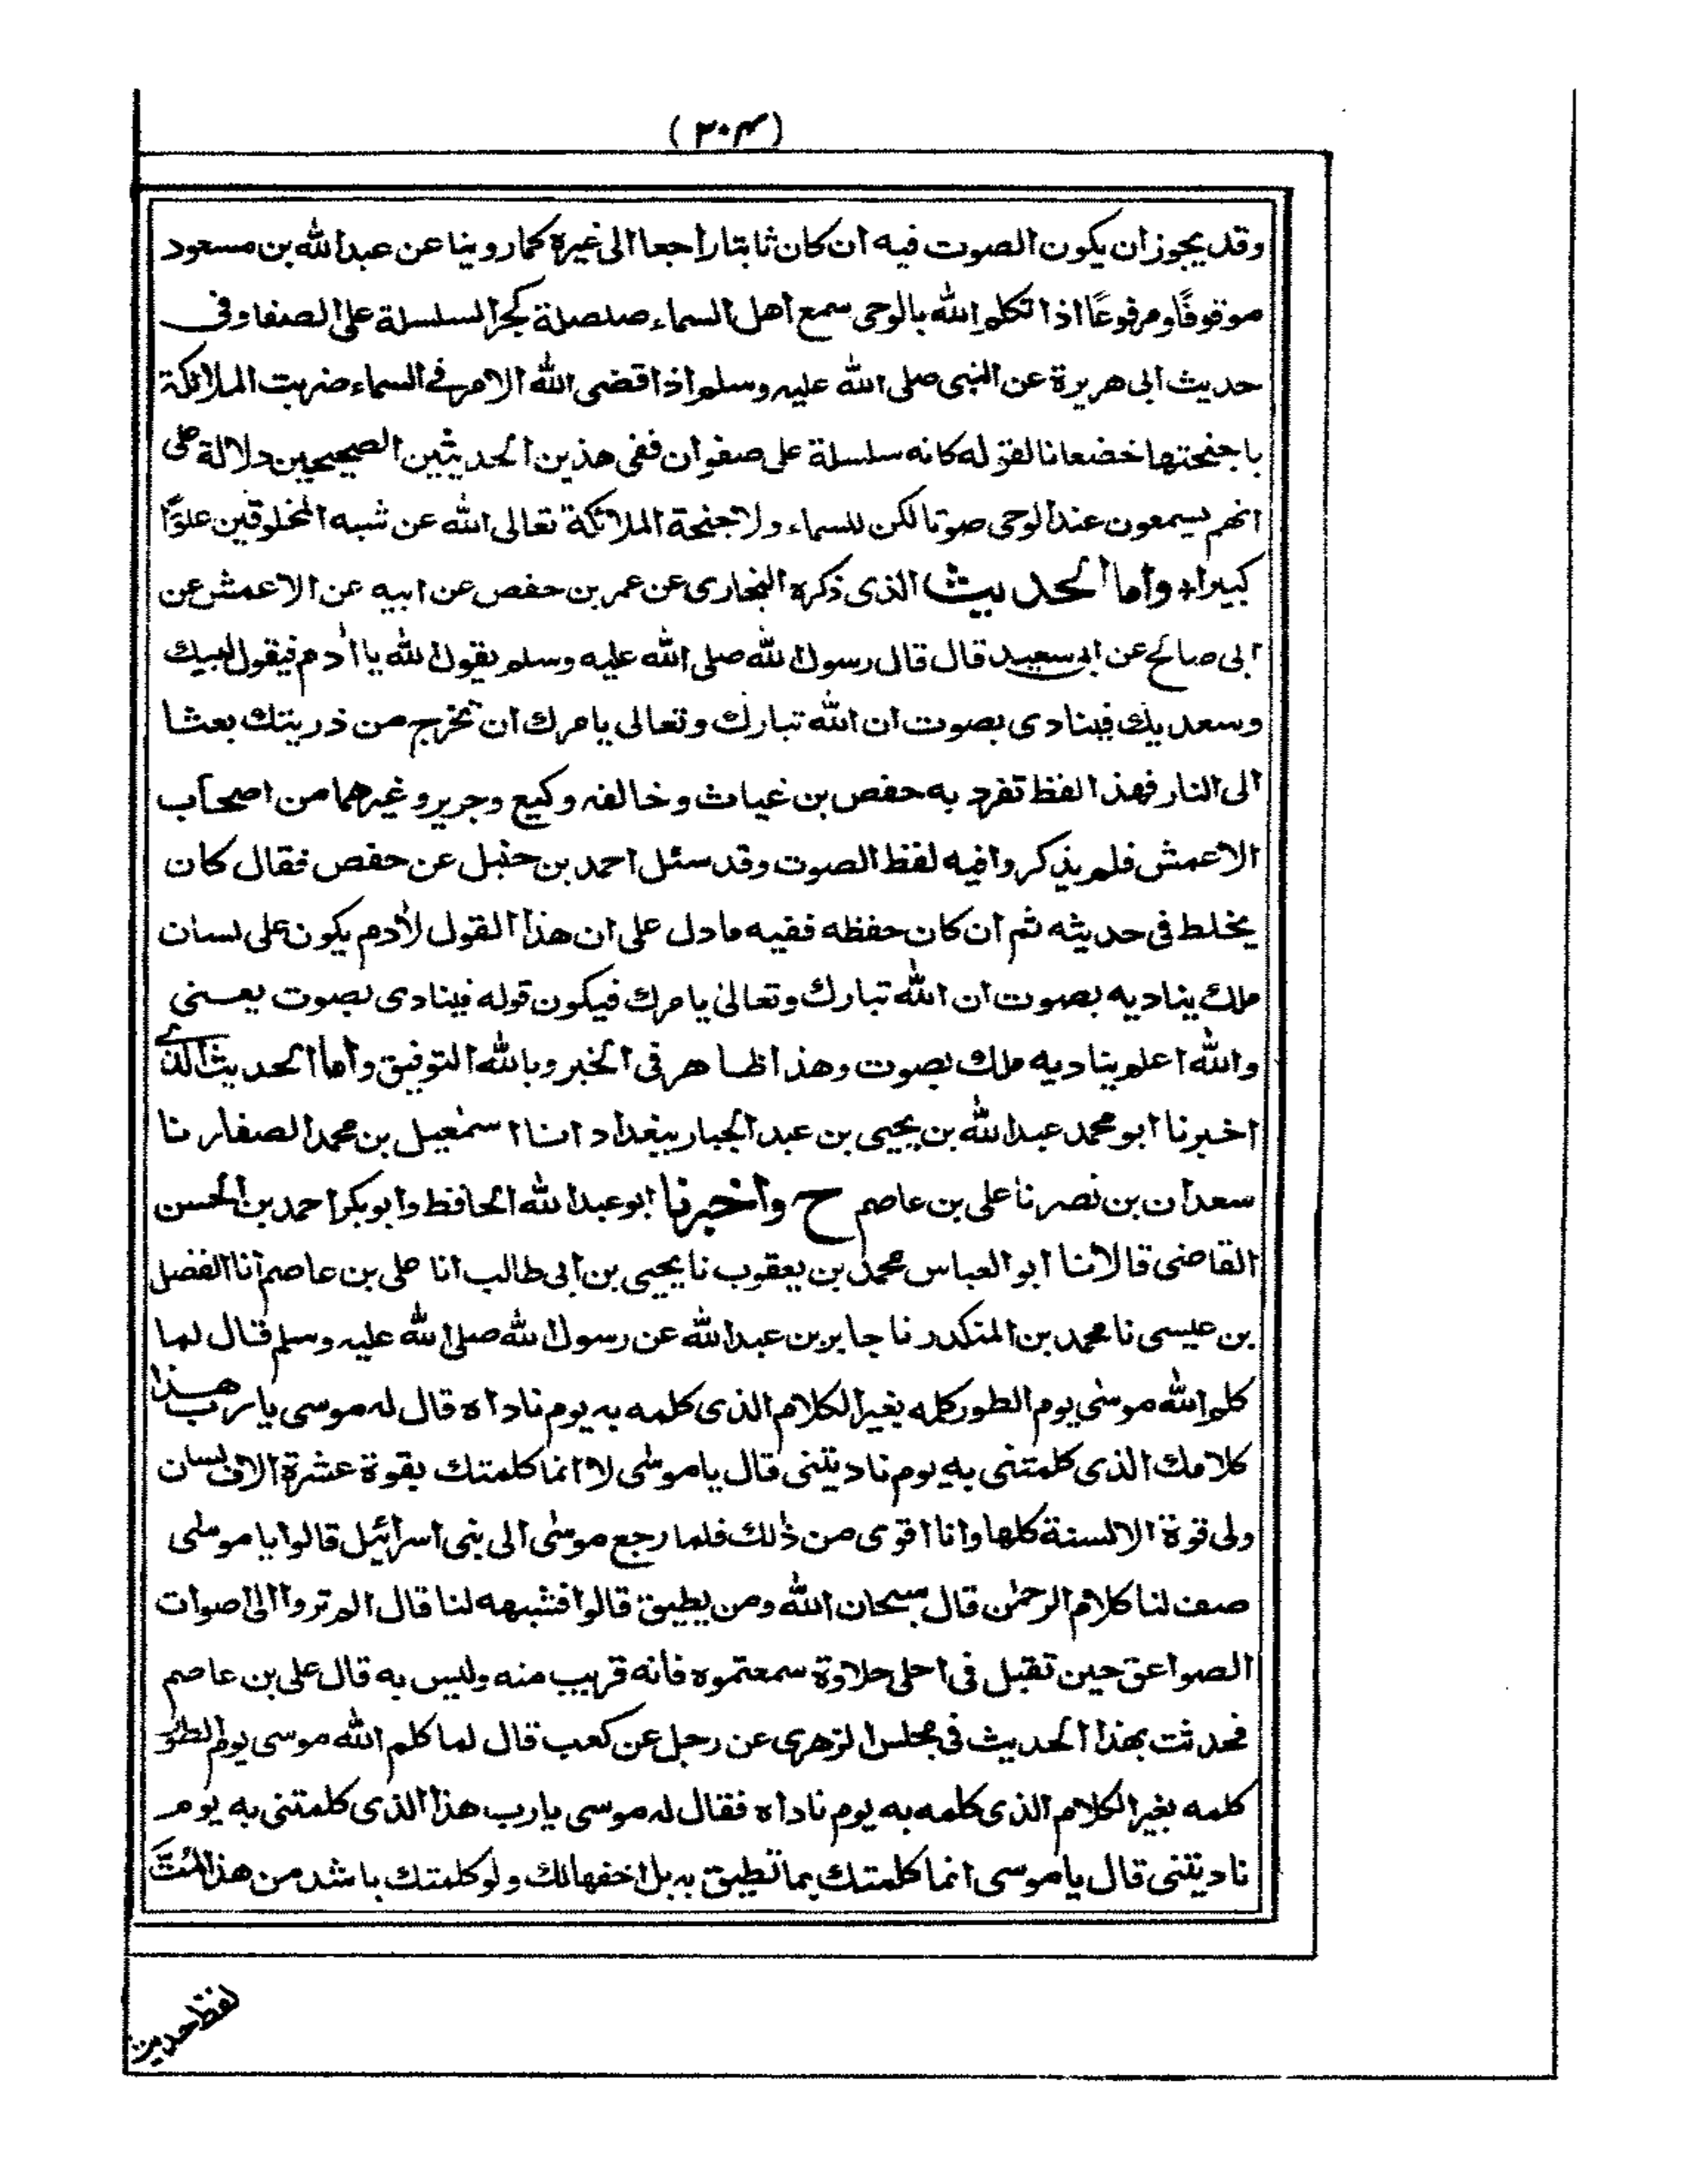 (٢٠٤)
وقد يجوز ان يكون الصوت فيه ان كان ثابتا راجعا الى غيره كما روينا عن عبد الله بن مسعود
موقوفًا ومرفوعًا اذا تكلم الله بالوحى سمع اهل السماء صلصلة كجر السلسلة على الصفا وفى
حديث ابى هريرة عن النبى صلى الله عليه وسلم اذا قضى الله الامر فى السماء ضربت الملائكة
باجنحتها خضعانا لقوله كانه سلسلة على صفوان ففى هذين الحديثين الصحيحين دلالة على
انهم يسمعون عند الوحى صوتا لكن للسماء ولاجنحة الملائكة تعالى الله عن شبه المخلوقين علوًّا
كبيرا + واما الحديث الذى ذكره البخارى عن عمر بن حفص عن ابيه عن الاعمش عن
ابى صالح عن ابى سعيد قال قال رسول الله صلى الله عليه وسلم يقول الله يا آدم فيقول لبيك
وسعديك فينادى بصوت ان الله تبارك وتعالى يامرك ان تخرج من ذريتك بعثا
الى النار فهذا لفظ تفرد به حفص بن غياث وخالفه وكيع وجرير وغيرهما من اصحاب
الاعمش فلم يذكروا فيه لفظ الصوت وقد سئل احمد بن حنبل عن حفص فقال كان
يخلط فى حديثه ثم ان كان حفظه ففيه ما دل على ان هذا القول لآدم يكون على لسان
ملك يناديه بصوت ان الله تبارك وتعالىٰ يامرك فيكون قوله فينادى بصوت يعنى
والله اعلم يناديه ملك بصوت وهذا ظاهر فى الخبر وبالله التوفيق واما الحديث الذى
اخبرنا ابو محمد عبد الله بن يحيى بن عبد الجبار ببغداد انا اسمٰعيل بن محمد الصفار نا
سعدان بن نصر نا على بن عاصم ح واخبرنا ابو عبد الله الحافظ وابو بكر احمد بن الحسن
القاضى قالا نا ابو العباس محمد بن يعقوب نا يحيى بن ابى طالب انا على بن عاصم انا الفضل
بن عيسى نا محمد بن المنكدر نا جابر بن عبد الله عن رسول الله صلى الله عليه وسلم قال لما
كلم الله موسٰى يوم الطور كلمه بغير الكلام الذى كلمه به يوم ناداه قال له موسى يا رب هذا
كلامك الذى كلمتنى به يوم ناديتنى قال يا موسٰى لا انما كلمتك بقوة عشرة الاف لسان
ولى قوة الالسنة كلها وانا اقوى من ذٰلك فلما رجع موسٰى الى بنى اسرائيل قالوا يا موسٰى
صف لنا كلام الرحمٰن قال سبحان الله ومن يطيق قالوا فشبهه لنا قال الم تروا الى اصوات
الصواعق حين تقبل فى احلى حلاوة سمعتموه فانه قريب منه وليس به قال على بن عاصم
فحدثت بهذا الحديث فى مجلس الزهرى عن رجل عن كعب قال لما كلم الله موسى يوم الطور
كلمه بغير الكلام الذى كلمه به يوم ناداه فقال له موسى يا رب هذا الذى كلمتنى به يوم
ناديتنى قال يا موسى انما كلمتك بما تطيق به بل اخفها لك ولو كلمتك باشد من هذا لمت
لفظ حديث